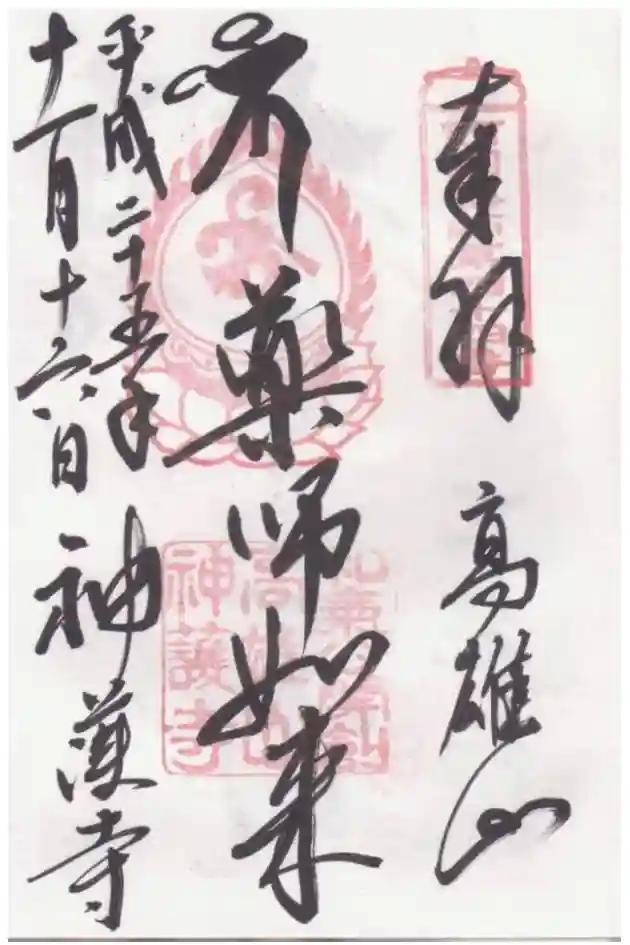 奉拝 高雄山
薬師如来
平成二十五年
十一月十六日 神護寺
高雄山
神護寺